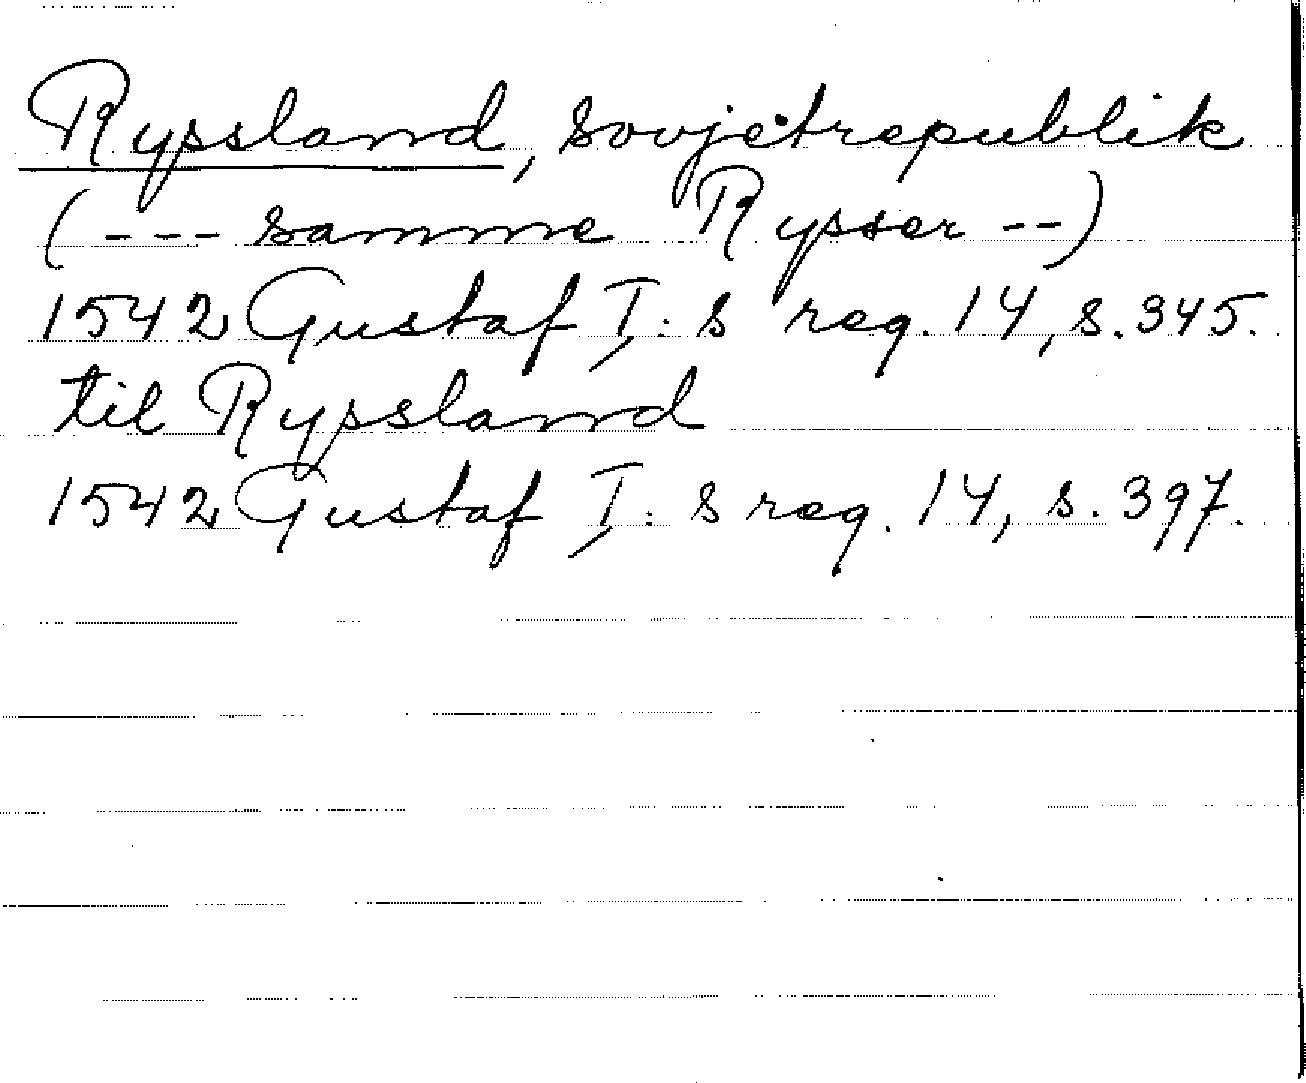 Ryssland, Sovjetrepublik
(--- samme Rysser --)
1542 Gustaf I:s reg. 14, s. 345.
til Ryssland
1542 Gustaf I:s reg. 14, s. 397.